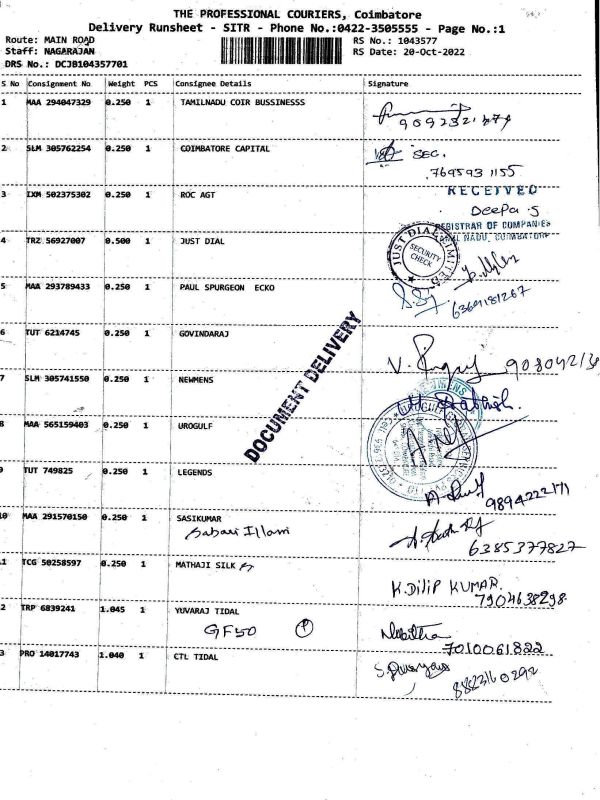 THE PROFESSIONAL COURIERS, Coimbatore
Delivery Runsheet - SITR - Phone No.:0422-3505555 - Page No.:1
Route: MAIN ROAD RS No.: 1043577
Staff: NAGARAJAN RS Date: 20-Oct-2022
DRS No.: DCJB104357701
S No Consignment No Weight PCS Consignee Details Signature
1 MAA 294047329 0.250 1 TAMILNADU COIR BUSSINESSS
2 SLM 305762254 0.250 1 COIMBATORE CAPITAL SEC.
769593 1155
3 IXM 502375302 0.250 1 ROC AGT RECEIVED
Deepa S
REGISTRAR OF COMPANIES
TAMIL NADU, COIMBATORE
4 TRZ 56927007 0.500 1 JUST DIAL JUST DIAL LIMITED
SECURITY CHECK
5 MAA 293789433 0.250 1 PAUL SPURGEON ECKO
6369181267
DOCUMENT DELIVERY
6 TUT 6214745 0.250 1 GOVINDARAJ
7 SLM 305741550 0.250 1 NEWMENS
8 MAA 565159403 0.250 1 UROGULF
9 TUT 749825 0.250 1 LEGENDS
9894222171
10 MAA 291570150 0.250 1 SASIKUMAR
Sabari Illam 6385377827
1 TCG 50258597 0.250 1 MATHAJI SILK
K.DILIP KUMAR.
7904638298
2 TRP 6839241 1.045 1 YUVARAJ TIDAL
GF50 P 7010061822
3 PRO 14017743 1.040 1 CTL TIDAL
8823160292